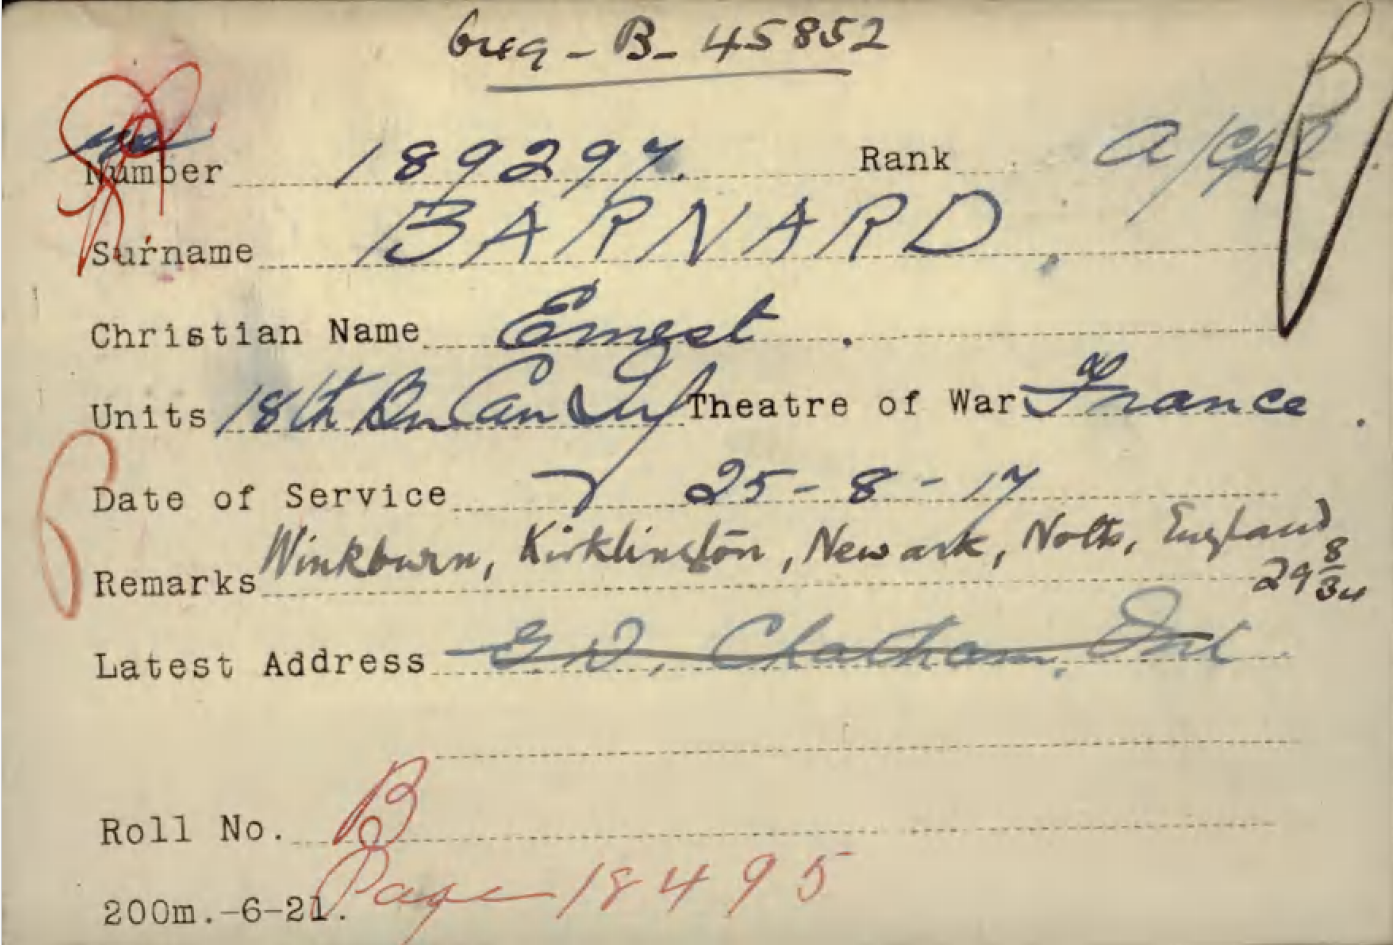 649-B-45852
B
Number 189297. Rank A/Cpl
Surname BARNARD.
Christian Name Ernest.
Units 18th Bn Can Inf Theatre of War France.
Date of Service 25-8-17
Remarks Winkburn, Kirklington, Newark, Notts, England
29 8/34
Latest Address G.D, Chatham, Ont
Roll No. B
200m.-6-21. Page 18495